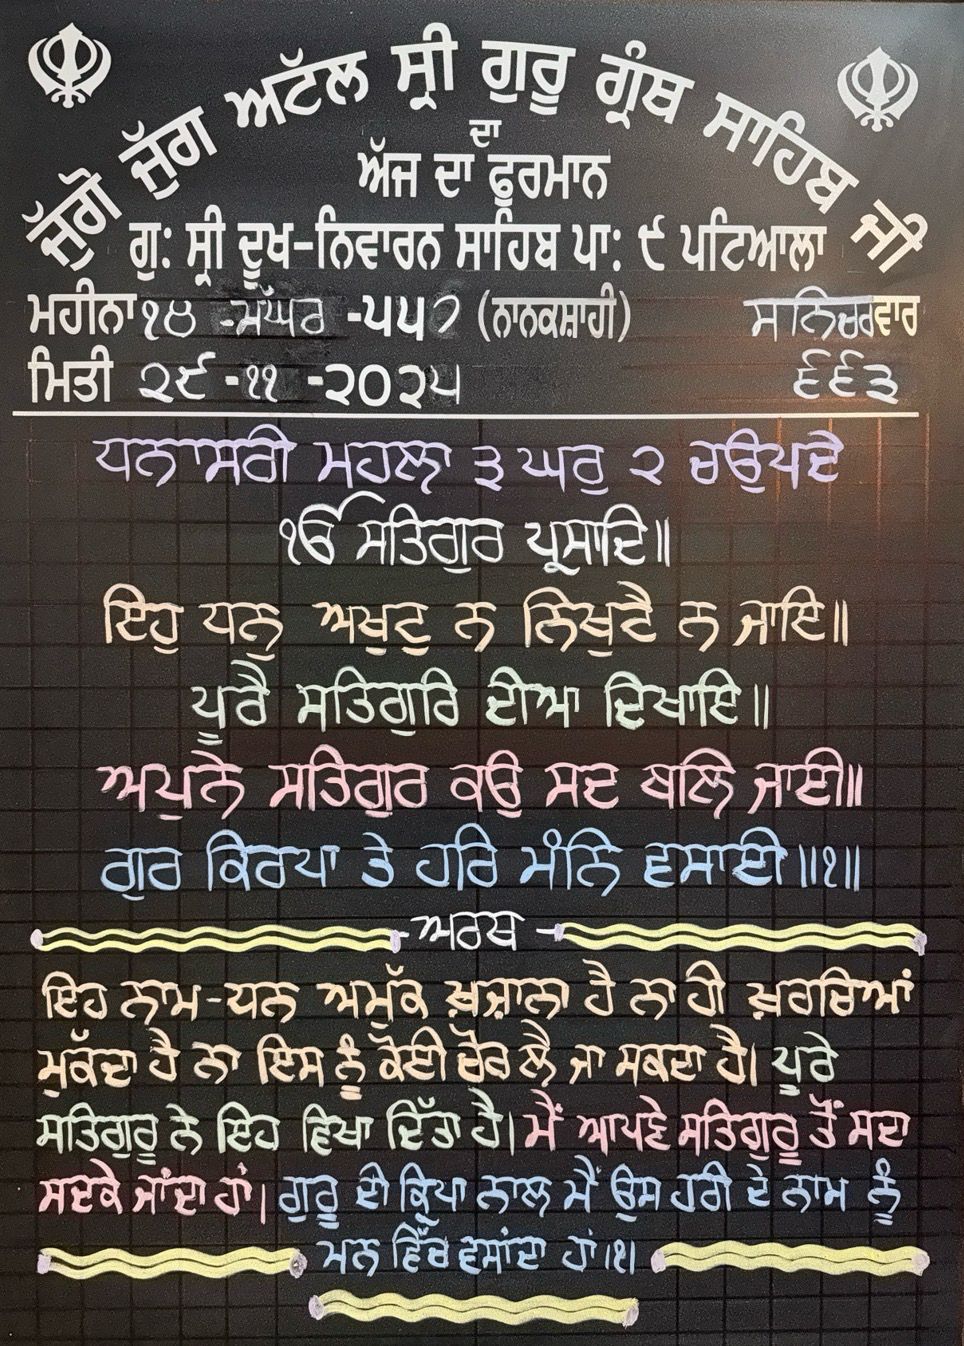 ਜੁੱਗੋ ਜੁੱਗ ਅਟੱਲ ਸ੍ਰੀ ਗੁਰੂ ਗ੍ਰੰਥ ਸਾਹਿਬ ਜੀ
ਦਾ
ਅੱਜ ਦਾ ਫੁਰਮਾਨ
ਗੁ: ਸ੍ਰੀ ਦੂਖ-ਨਿਵਾਰਨ ਸਾਹਿਬ ਪਾ: ੯ ਪਟਿਆਲਾ
ਮਹੀਨਾ ੧੪ -ਮੱਘਰ -੫੫੭ (ਨਾਨਕਸ਼ਾਹੀ) ਸਨਿਚਰਵਾਰ
ਮਿਤੀ ੨੯ -੧੧ -੨੦੨੫ ੬੬੩
ਧਨਾਸਰੀ ਮਹਲਾ ੩ ਘਰੁ ੨ ਚਉਪਦੇ
ੴ ਸਤਿਗੁਰ ਪ੍ਰਸਾਦਿ॥
ਇਹੁ ਧਨੁ ਅਖੁਟੁ ਨ ਨਿਖੁਟੈ ਨ ਜਾਇ॥
ਪੂਰੈ ਸਤਿਗੁਰਿ ਦੀਆ ਦਿਖਾਇ॥
ਅਪੁਨੇ ਸਤਿਗੁਰ ਕਉ ਸਦ ਬਲਿ ਜਾਈ॥
ਗੁਰ ਕਿਰਪਾ ਤੇ ਹਰਿ ਮੰਨਿ ਵਸਾਈ॥੧॥
-ਅਰਥ-
ਇਹ ਨਾਮ-ਧਨ ਅਮੁੱਕ ਖ਼ਜ਼ਾਨਾ ਹੈ ਨਾ ਹੀ ਖ਼ਰਚਿਆਂ
ਮੁੱਕਦਾ ਹੈ ਨਾ ਇਸ ਨੂੰ ਕੋਈ ਚੋਰ ਲੈ ਜਾ ਸਕਦਾ ਹੈ। ਪੂਰੇ
ਸਤਿਗੁਰੂ ਨੇ ਇਹ ਵਿਖਾ ਦਿੱਤਾ ਹੈ। ਮੈਂ ਆਪਣੇ ਸਤਿਗੁਰੂ ਤੋਂ ਸਦਾ
ਸਦਕੇ ਜਾਂਦਾ ਹਾਂ। ਗੁਰੂ ਦੀ ਕ੍ਰਿਪਾ ਨਾਲ ਮੈਂ ਉਸ ਹਰੀ ਦੇ ਨਾਮ ਨੂੰ
ਮਨ ਵਿੱਚ ਵਸਾਂਦਾ ਹਾਂ।੧।